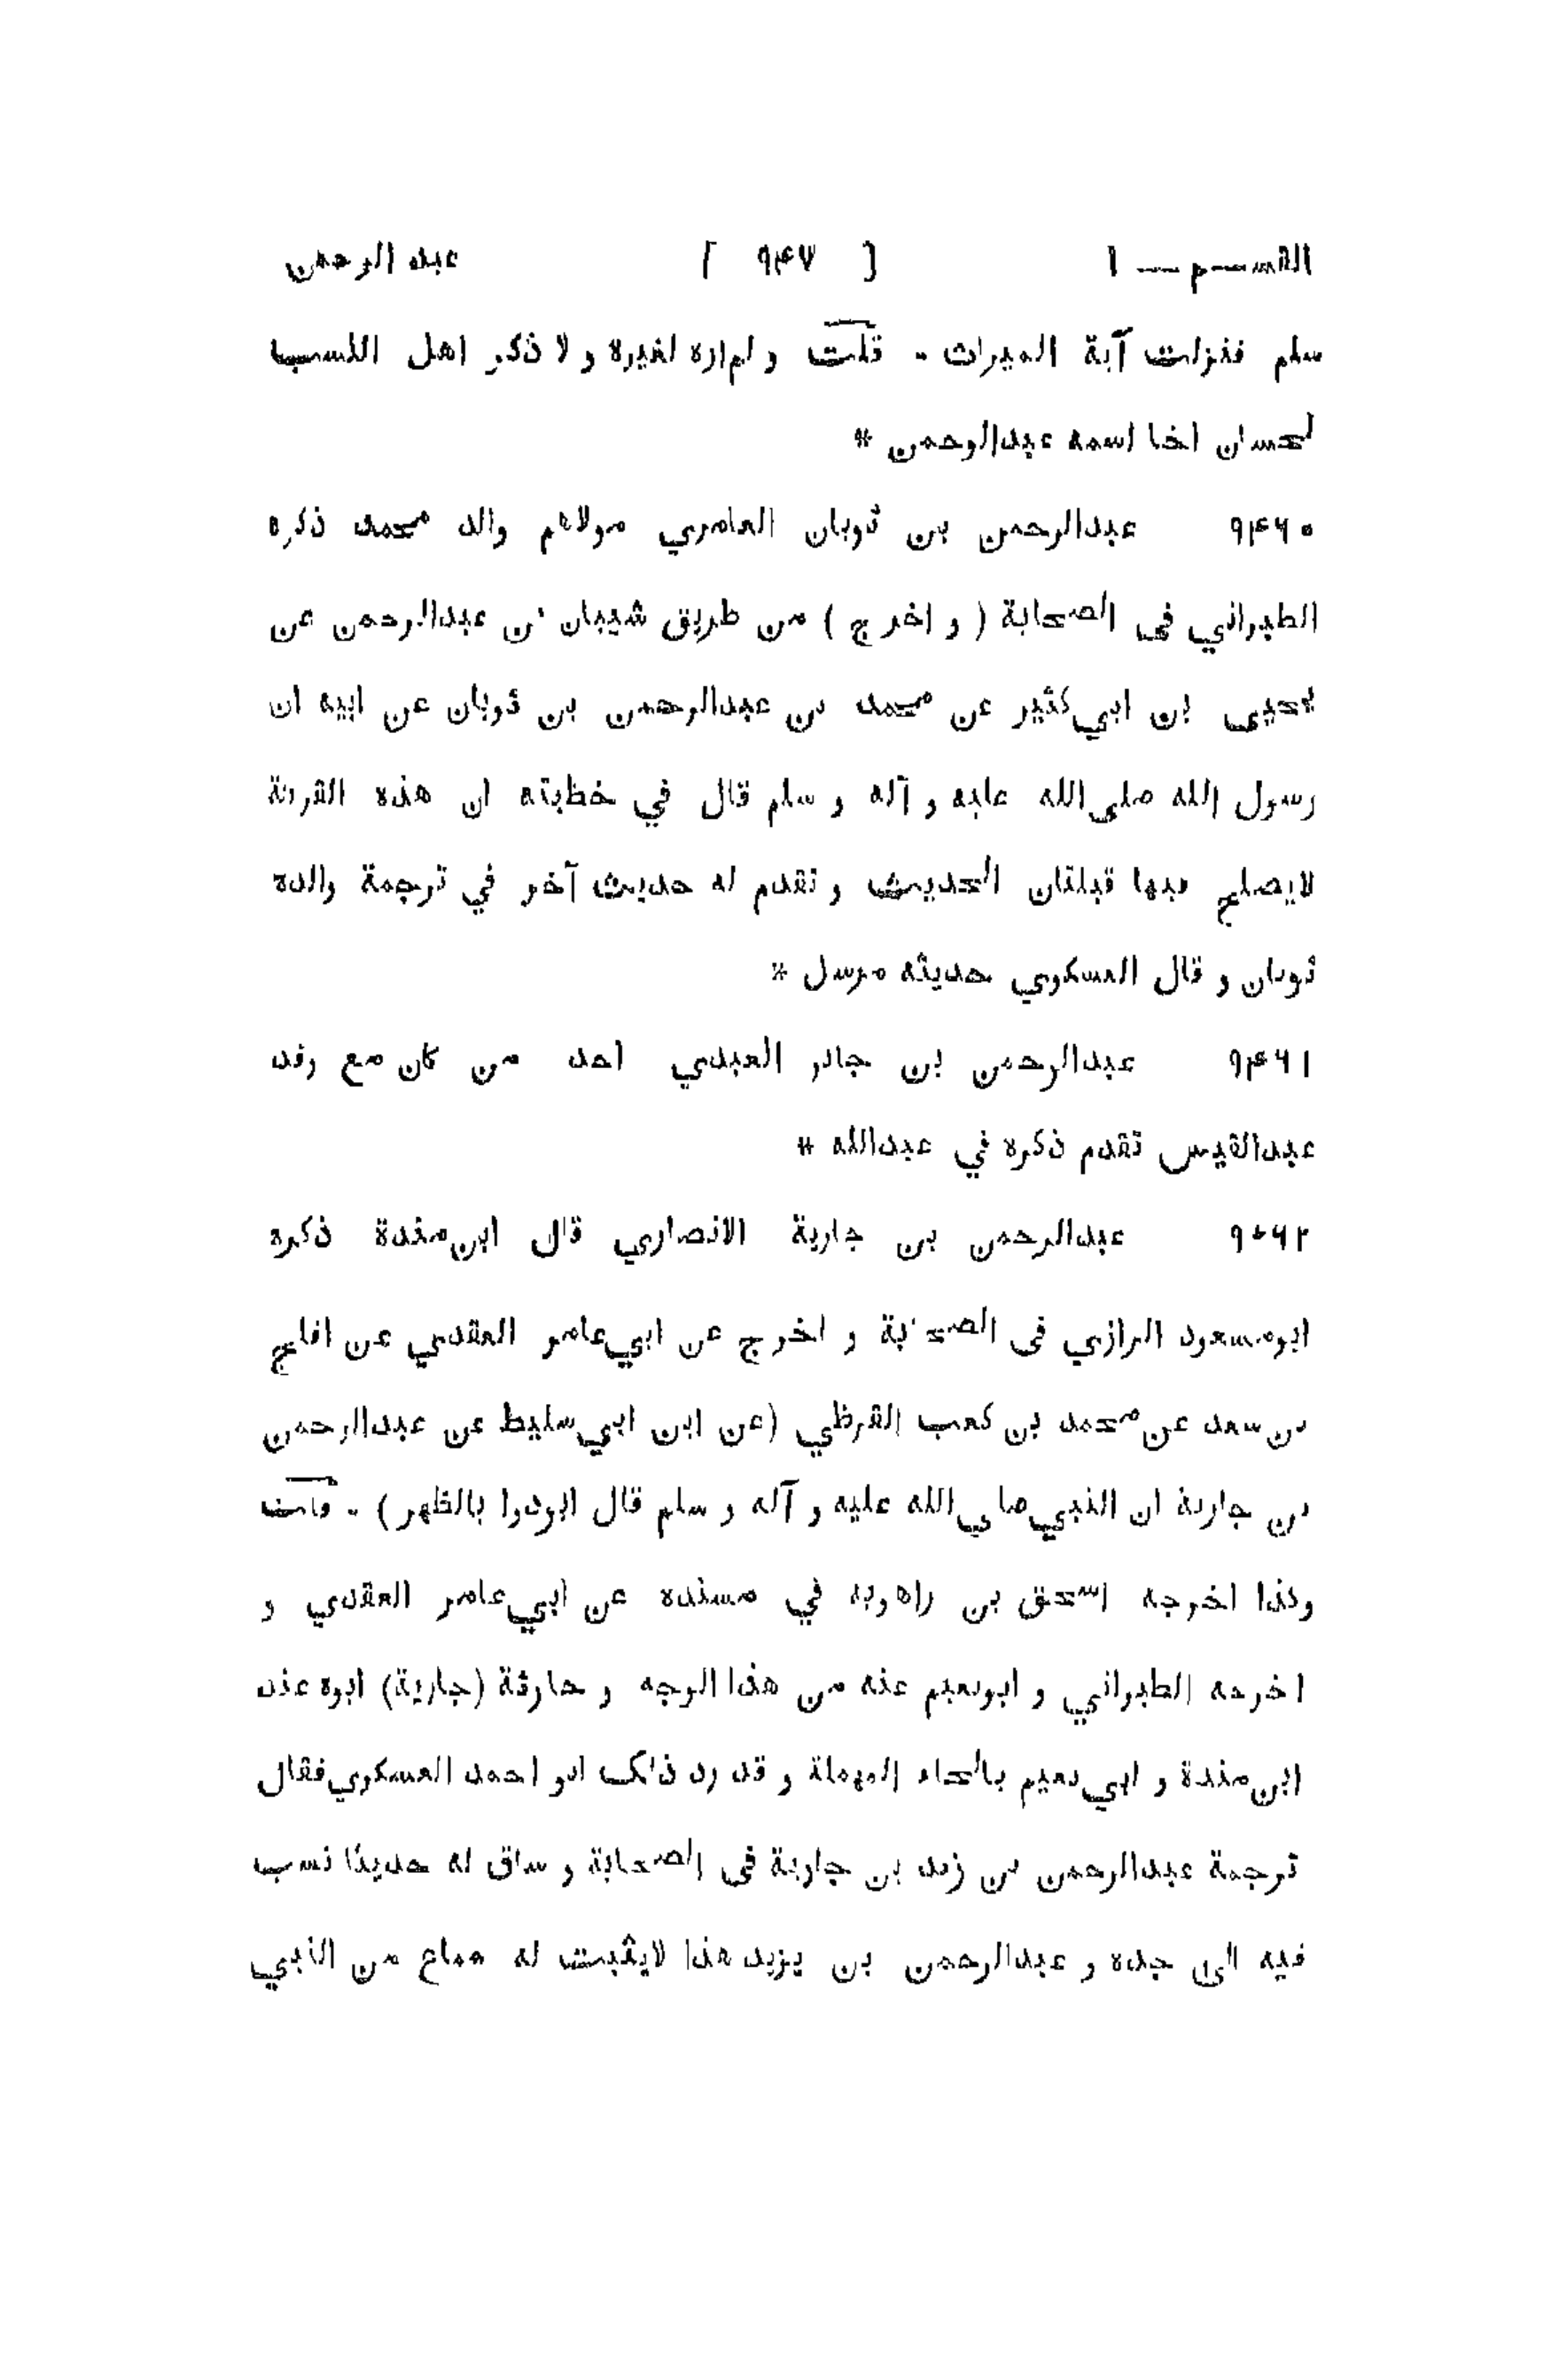 القســم — ١ [ ٩۴٧ ] عبد الرحمن
سلم فنزلت آية الميراث - قلت و لم اره لغيره و لا ذكر اهل النسب
لحسان اخا اسمه عبدالرحمن *
٩۴٦٠ عبدالرحمن بن ثوبان العامري مولاهم والد محمد ذكره
الطبراني فى الصحابة ( و اخرج ) من طريق شيبان بن عبدالرحمن عن
يحيى بن ابي كثير عن محمد بن عبدالرحمن بن ثوبان عن ابيه ان
رسول الله صلى الله عليه و آله و سلم قال في خطبته ان هذه القرية
لايصلح فيها قبلتان الحديث و تقدم له حديث آخر في ترجمة والده
ثوبان و قال العسكري حديثه مرسل *
٩۴٦١ عبدالرحمن بن جابر العبدي احد من كان مع وفد
عبدالقيس تقدم ذكره في عبدالله *
٩۴٦٢ عبدالرحمن بن جارية الانصاري قال ابن مندة ذكره
ابو مسعود الرازي فى الصحابة و اخرج عن ابي عامر العقدي عن افلح
بن سعد عن محمد بن كعب القرظي (عن ابن ابي سليط عن عبدالرحمن
بن جارية ان النبي صلي الله عليه و آله و سلم قال ابردوا بالظهر) - قلت
وكذا اخرجه اسحق بن راهويه في مسنده عن ابي عامر العقدي و
اخرجه الطبراني و ابو نعيم عنه من هذا الوجه و حارثة (جارية) ابوه عند
ابن مندة و ابي نعيم بالحاء المهملة و قد رد ذلك ابو احمد العسكري فقال
ترجمة عبدالرحمن بن زيد بن جارية فى الصحابة و ساق له حديثا نسب
فيه الى جده و عبدالرحمن بن يزيد هذا لايثبت له سماع من النبي